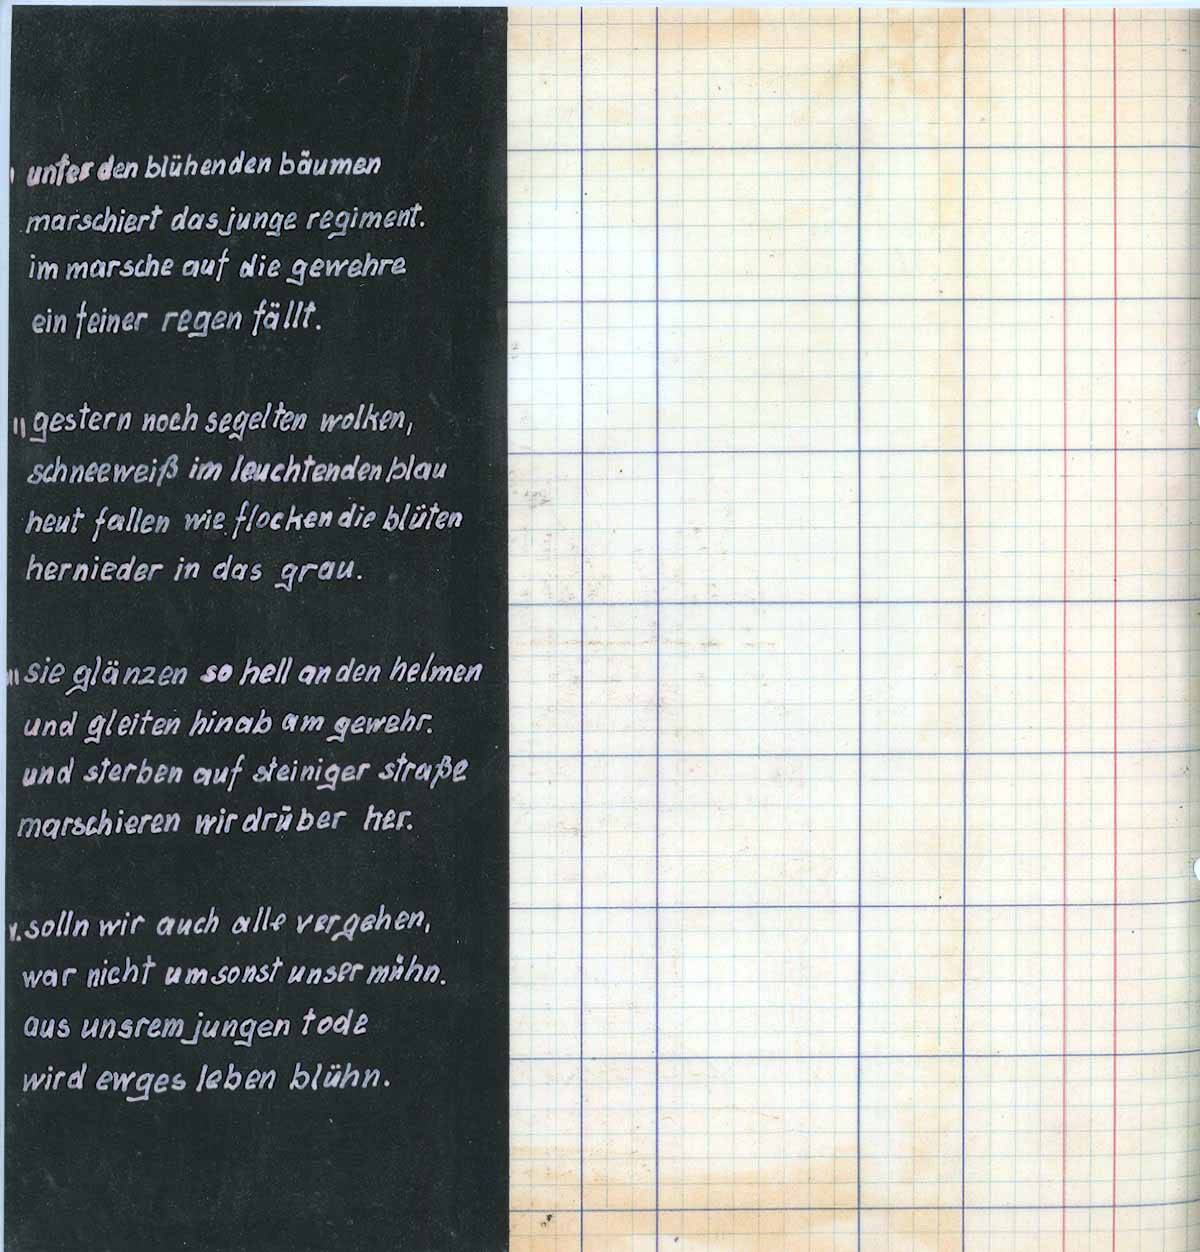 I unter den blühenden bäumen
marschiert das junge regiment.
im marsche auf die gewehre
ein feiner regen fällt.
II gestern noch segelten wolken,
schneeweiß im leuchtenden blau
heut fallen wie flocken die blüten
hernieder in das grau.
III sie glänzen so hell an den helmen
und gleiten hinab am gewehr.
und sterben auf steiniger straße
marschieren wir drüber her.
V. solln wir auch alle vergehen,
war nicht umsonst unser mühn.
aus unsrem jungen tode
wird ewges leben blühn.